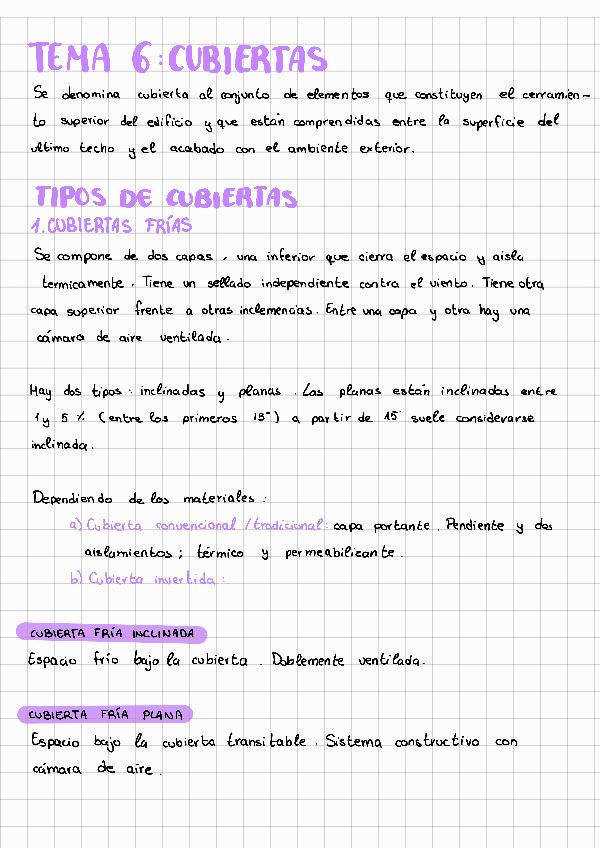 TEMA 6: CUBIERTAS
Se denomina cubierta al conjunto de elementos que constituyen el cerramien-
to superior del edificio y que están comprendidas entre la superficie del
ultimo techo y el acabado con el ambiente exterior.
TIPOS DE CUBIERTAS
1. CUBIERTAS FRÍAS
Se compone de dos capas, una inferior que cierra el espacio y aisla
termicamente. Tiene un sellado independiente contra el viento. Tiene otra
capa superior frente a otras inclemencias. Entre una capa y otra hay una
cámara de aire ventilada.
Hay dos tipos: inclinadas y planas. Las planas están inclinadas entre
1 y 5 % (entre los primeros 15°) a partir de 15° suele considerarse
inclinada.
Dependiendo de los materiales:
a) Cubierta convencional / tradicional: capa portante. Pendiente y dos
aislamientos; térmico y permeabilizante.
b) Cubierta invertida:
CUBIERTA FRÍA INCLINADA
Espacio frío bajo la cubierta. Doblemente ventilada.
CUBIERTA FRÍA PLANA
Espacio bajo la cubierta transitable. Sistema constructivo con
cámara de aire.